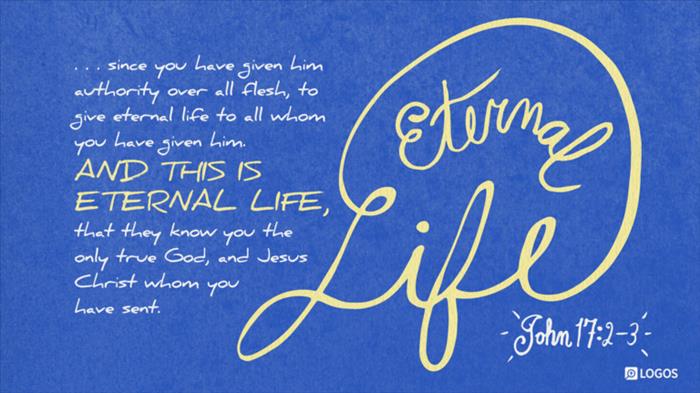 . . . since you have given him
authority over all flesh, to
give eternal life to all whom
you have given him.
AND THIS IS
ETERNAL LIFE,
that they know you the
only true God, and Jesus
Christ whom you
have sent.
Eternal
Life
John 17:2-3
LOGOS